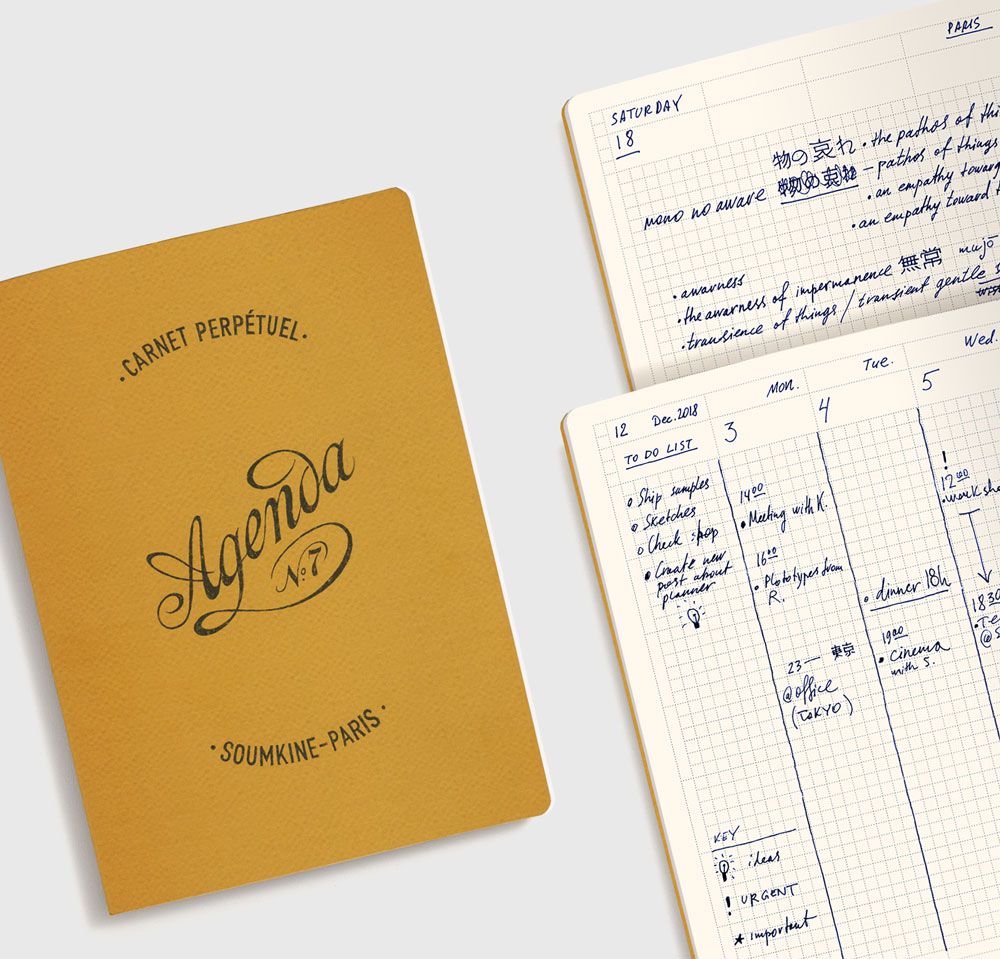 ·CARNET PERPÉTUEL·
Agenda
№7
·SOUMKINE-PARIS·
PARIS
SATURDAY
18
物の哀れ • the pathos of thi
mono no aware 物の哀れ – pathos of things
• an empathy towar
• an empathy toward t
• awarness
• the awarness of impermanence 無常 mujō
• transience of things / transient gentle
12 Dec. 2018
TO DO LIST
o Ship samples
o Sketches
o Check shop
• Create new
post about
planner
Mon.
3
14 00
• Meeting with K.
16 00
• Plototypes from
R.
23 — 東京
@office
(TOKYO)
Tue.
4
• dinner 18h
19 00
• Cinema
with S.
Wed.
5
!
12 00
• worksho
18 30
• Te
@S
KEY
ideas
! URGENT
★ important